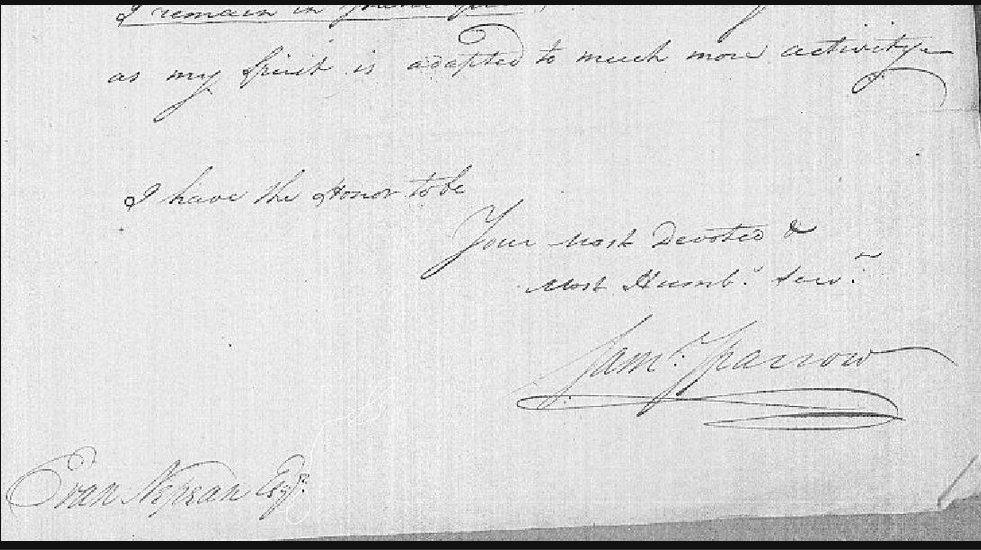 I remain in
as my Spirit is adapted to much more activity
I have the Honor to be
Your Most Devoted &
Most Humb.l Serv.t
Sam.l Sparrow
Evan Nepean Esq.r